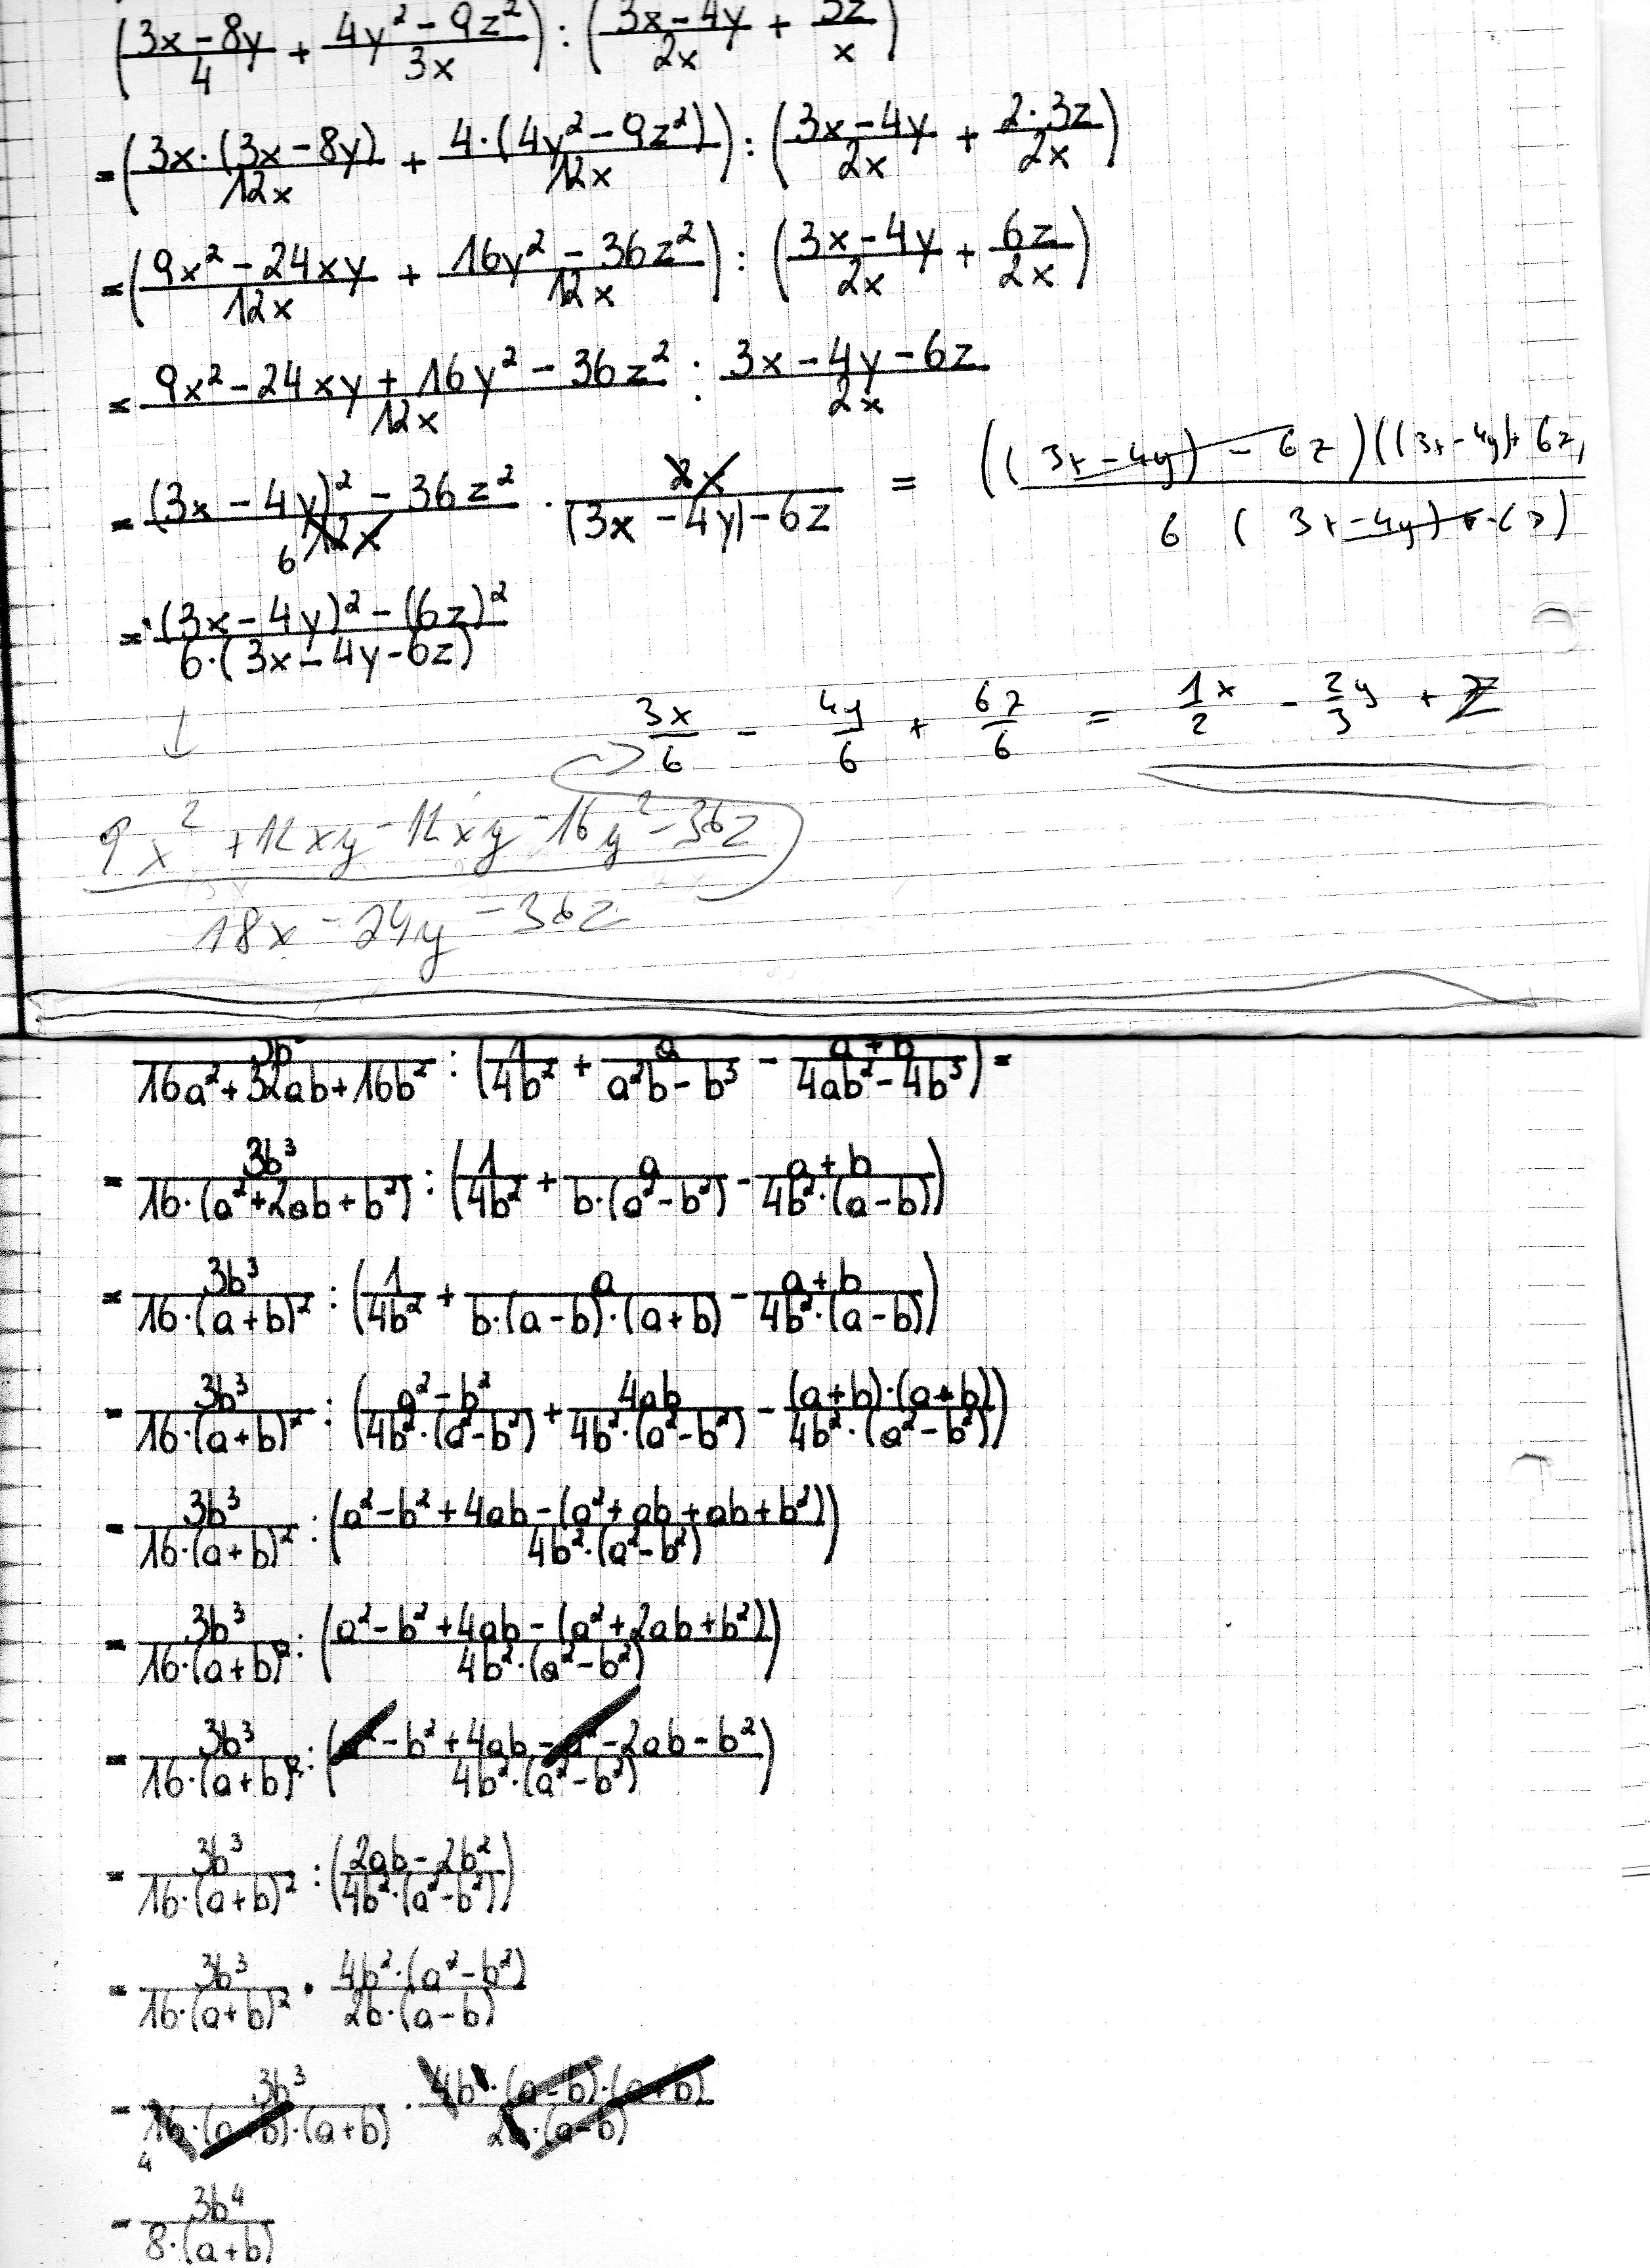 (3x-8y/4 + 4y²-9z²/3x) : (3x-4y/2x + 3z/x)
=(3x·(3x-8y)/12x + 4·(4y²-9z²)/12x) : (3x-4y/2x + 2·3z/2x)
=(9x²-24xy/12x + 16y²-36z²/12x) : (3x-4y/2x + 6z/2x)
= 9x²-24xy+16y²-36z²/12x : 3x-4y-6z/2x
= (3x-4y)²-36z²/12x 6 · 2x/(3x-4y)-6z = ((3x-4y)-6z)((3x-4y)+6z)/6(3x-4y)
= (3x-4y)²-(6z)²/6·(3x-4y-6z)
↓
3x/6 - 4y/6 + 6z/6 = 1x/2 - 2y/3 + z
9x²+12xy-12xy-16y²-36z/18x-24y-36z
/16a²+32ab+16b² : (1/4b² + a/a²b-b³ - a+b/4ab²-4b³) =
= 3b³/16·(a²+2ab+b²) : (1/4b² + a/b·(a²-b²) - a+b/4b²·(a-b))
= 3b³/16·(a+b)² : (1/4b² + a/b·(a-b)·(a+b) - a+b/4b²·(a-b))
= 3b³/16·(a+b)² : (a²-b²/4b²·(a²-b²) + 4ab/4b²·(a²-b²) - (a+b)·(a+b)/4b²·(a²-b²))
= 3b³/16·(a+b)² : (a²-b²+4ab-(a²+ab+ab+b²)/4b²·(a²-b²))
= 3b³/16·(a+b)² : (a²-b²+4ab-(a²+2ab+b²)/4b²·(a²-b²))
= 3b³/16·(a+b)² : (a²-b²+4ab-a²-2ab-b²/4b²·(a²-b²))
= 3b³/16·(a+b)² : (2ab-2b²/4b²·(a²-b²))
= 3b³/16·(a+b)² · 4b²·(a²-b²)/2b·(a-b)
= 3b³/16·(a+b)·(a+b) 4 · 4b·(a-b)·(a+b)/2b·(a-b)
= 3b⁴/8·(a+b)